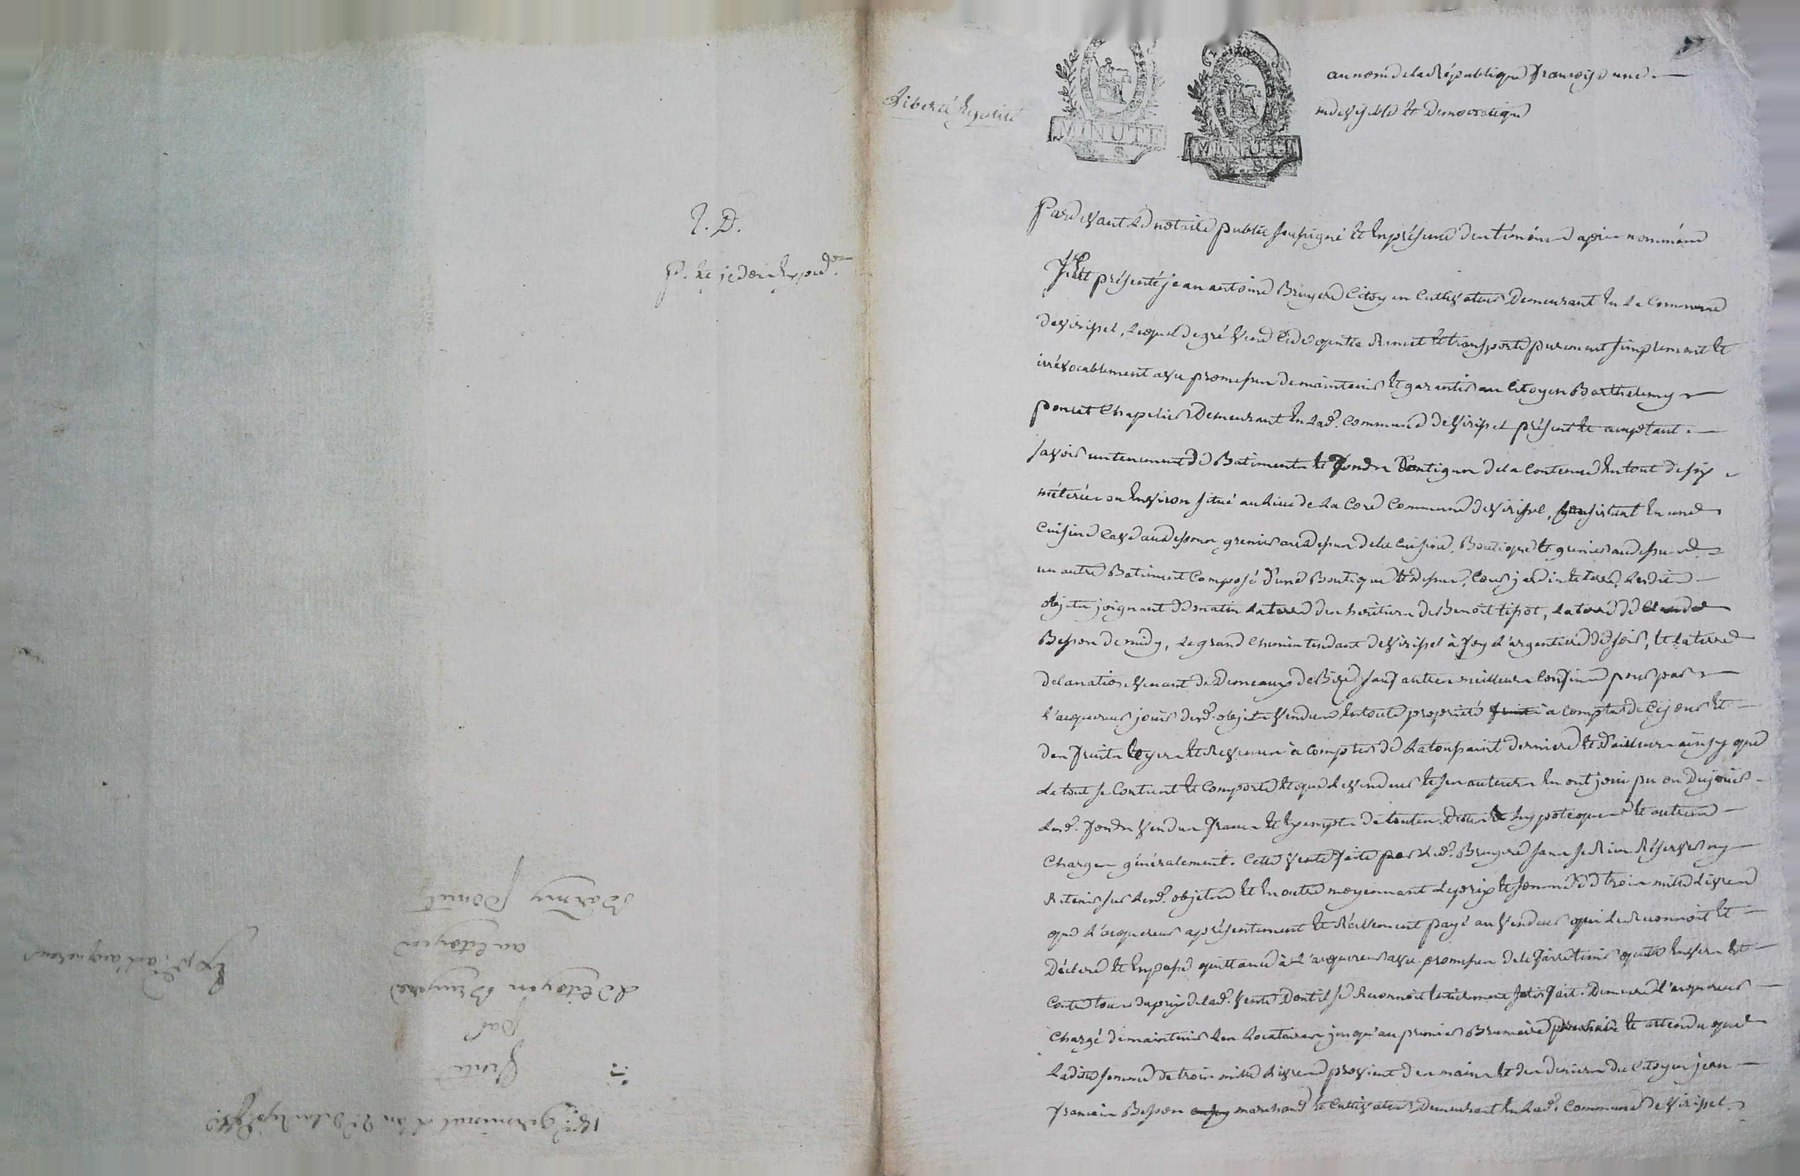 Liberté Égalité
MINUTE
MINUTE
au nom de la République françoise une
indivisible et Democratique
P. D.
Pardevant le notaire public soussigné et en présence des témoins apres nommés
fut présent jean antoine Bruyere Citoyen Cultivateur Demeurant en la Commune
de Virisel, lequel de gré vend cede quitte Remet et transporte purement simplement et
irrévocablement avec promesse de maintenir et garantir au Citoyen Barthelemy
poncet Chapelier Demeurant en lad. Commune de Virisel présent et acceptant
savoir un tenement de Batiments et fonds Contigus de la Contenue en tout de six
métérées ou Environ situé au lieu de la Core Commune de Virisel, Consistant En une
Cuisine Cave au dessous grenier au dessus de la Cuisine, Boutique et grenier au dessus
un autre Batiment Composé d'une Boutique et dessus, Cour jardin et terre, lesdits
objets joignant de matin la terre des heritiers de Benoit tissot, la terre de Claude
Besson de midy, le grand Chemin tendant de Virisel à l'argentiere de soir, et la terre
de la nation venant de de Bize sauf autres meilleurs Confins pour par
l'acquereur jouir desd. objets Vendus en toute propriété a compter de Ce jour et
des fruits loyers et Revenus à Compter de la toussaint derniere et d'ailleurs ainsy que
le tout se Contient et Comporte et que le vendeur et ses auteurs En ont joui pu ou Du jouir
lesd. fonds vendus francs et Exempts de toutes Dettes hypoteques et autres
Charges généralement. Cette Vente faite par led. Bruyere sans se Rien Réserver ny
Retenir sur lesd. objets et En outre moyennant le prix et somme de trois mille livres
que l'acquereur a présentement et Réellement payé au Vendeur qui le Reconnoit et
Déclare et En passe quittance à l'acquereur avec promesse de l'en faire tenir quitte Envers et
Contre tous du prix de lad. Vente dont il se Reconnoit Entierement satisfait. Demeure l'acquereur
Chargé de maintenir les locataires jusqu'au premier Brumaire prochain et attendu que
Ladite somme de trois mille livres provient des mains et des deniers du Citoyen jean
françois Besson marchand et Cultivateur Demeurant En lad. Commune de Virisel
18 germinal l'an
Vente
par
le Citoyen Bruyere
au Citoyen
Barmy Poncet
Exp. à l'acquereur